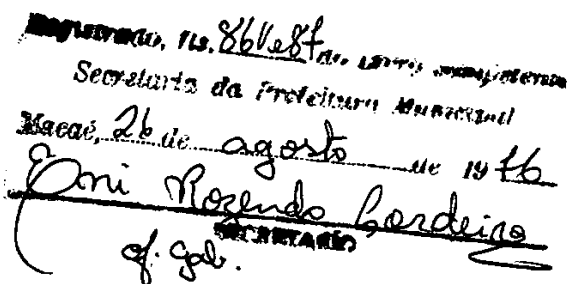 Registrado, fls. 86V e 87 do Livro competente
Secretaria da Prefeitura Municipal
Macaé, 26 de agosto de 1976
Eni Rozendo Cordeiro
SECRETARIO
of. gab.